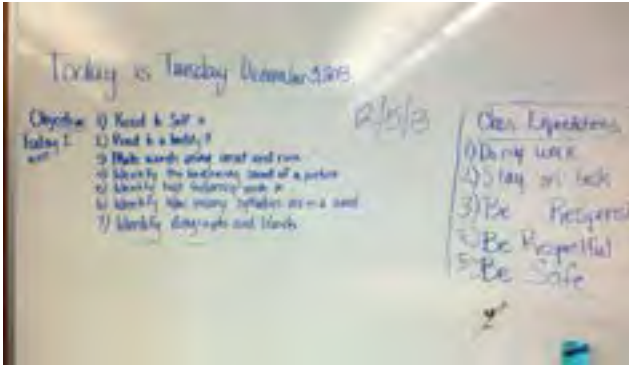 Today is Tuesday December 3, 2013
Objective 1) Read to Self
Today I 2) Read to a buddy
3) Make words using onset and rime
4) Identify the beginning sound of a picture
5) Identify high
6) Identify how many syllables are in a word
7) Identify diagraphs and blends
Class Expectations
1) Do my work
2) Stay on task
3) Be
4) Be Respectful
5) Be Safe